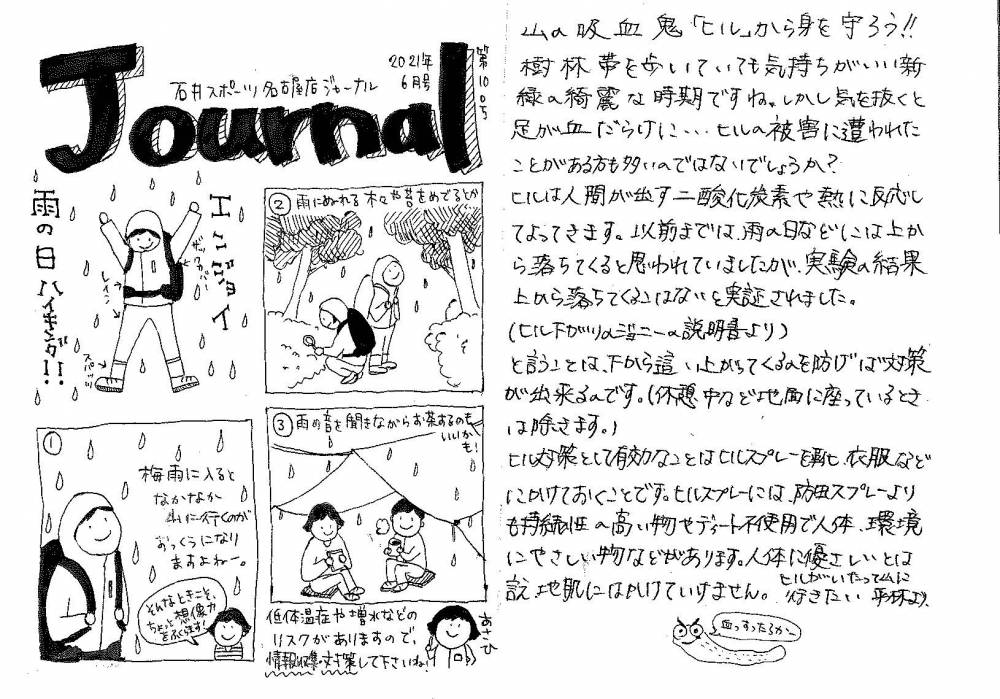 Journal
石井スポーツ名古屋店ジャーナル
2021年
6月号
第100号
雨の日ハイキング!!
エンジョイ
ザックカバー
レイン
スパッツ
①
梅雨に入ると
なかなか
山に行くのが
おっくうになり
ますよねー。
そんなときこそ、
ちょっと想像力
をふくらます!
②雨にぬれる木々や苔をめでるとか
③雨の音を聞きながらお茶するのも
いいかも!
低体温症や増水などの
リスクがありますので、
情報収集・対策して下さいね!
あさひ
山の吸血鬼「ヒル」から身を守ろう!!
樹林帯を歩いていても気持ちがいい新
緑の綺麗な時期ですね。しかし気を抜くと
足が血だらけに…ヒルの被害に遭われた
ことがある方も多いのではないでしょうか?
ヒルは人間が出す二酸化炭素や熱に反応し
てよってきます。以前までは、雨の日などには上か
ら落ちてくると思われていましたが、実験の結果
上から落ちてくることはないと実証されました。
(ヒル下がりのジョニーの説明書より)
と言うことは、下から這い上がってくるのを防げば対策
が出来るのです。(休憩中など地面に座っているとき
は除きます。)
ヒル対策として有効なことはヒルスプレーを靴、衣服など
にかけておくことです。ヒルスプレーには、防虫スプレーより
も持続性の高い物やディート不使用で人体、環境
にやさしい物などがあります。人体に優さしいとは
言え地肌にはかけていけません。
ヒルがいたって山に
行きたい 平林より
血っすったろかー